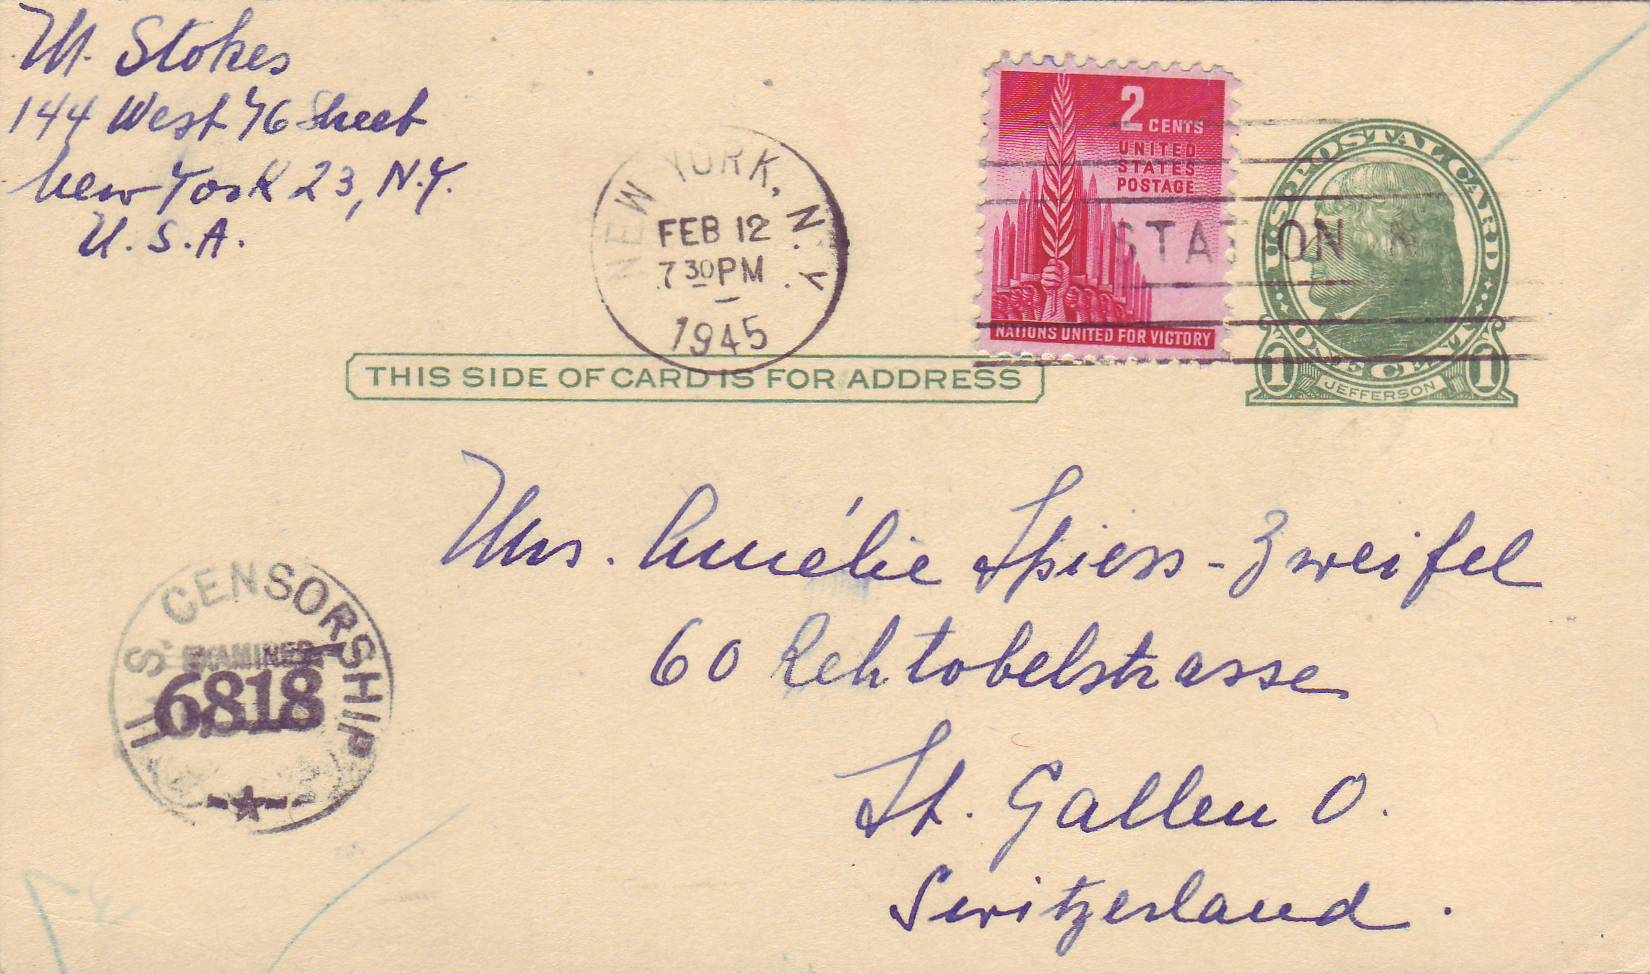 M. Stokes
144 West 76 Street
New York 23, N.Y.
U.S.A.
NEW YORK, N.Y.
FEB 12
7 30 PM
1945
2 CENTS
UNITED
STATES
POSTAGE
NATIONS UNITED FOR VICTORY
STATION
U.S. POSTAL CARD
1 ONE CENT 1
JEFFERSON
THIS SIDE OF CARD IS FOR ADDRESS
Mrs. Amélie Spiess-Zweifel
60 Rehtobelstrasse
St. Gallen O.
Switzerland.
U.S. CENSORSHIP
EXAMINED
6818